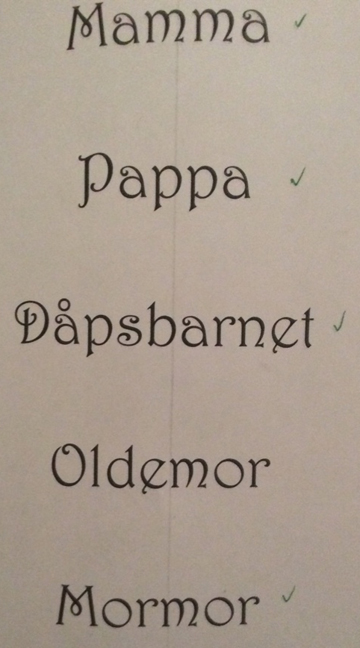 Mamma ✓
Pappa ✓
Dåpsbarnet ✓
Oldemor
Mormor ✓